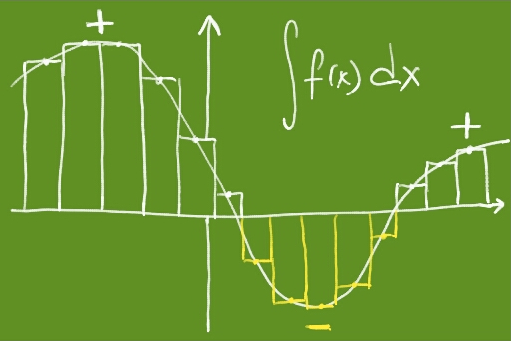 +
∫f(x)dx
+
−